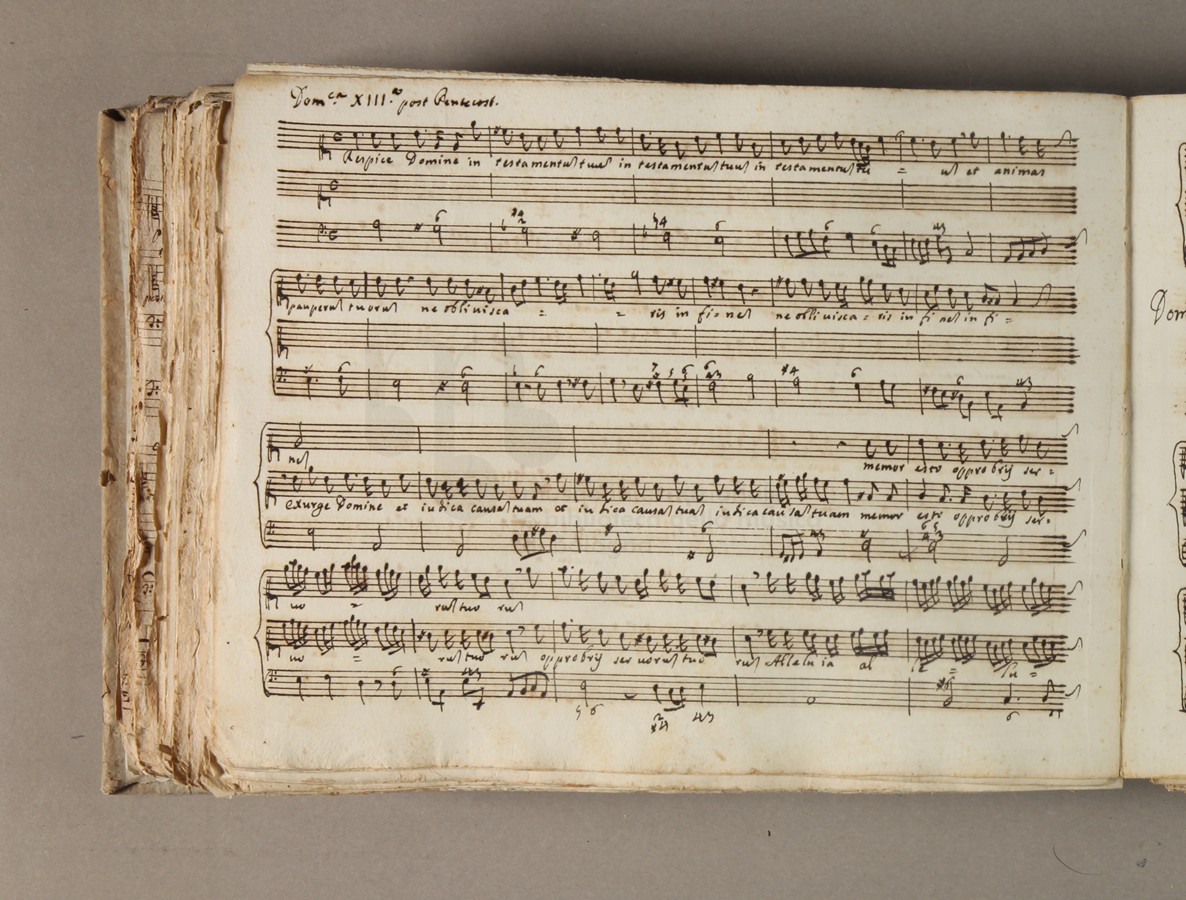 Dom.ca XIII.a post Pentecost.
Respice Domine in testamentu tuu in testamentu tuu in testamentu tu = u et animas
pauperu tuoru ne obliuisca = = ris in fi= ne ne obliuisca = ris in fi ne in fi =
ne memor esto opprobrij ser =
exurge Domine et iudica causa tuam et iudica causa tua iudica causa tuam memor esto opprobrij ser=
uo = ru tuo ru
uo = ru tuo ru opprobrij seruoru tuo ru Alleluia al le = lu =
Dom